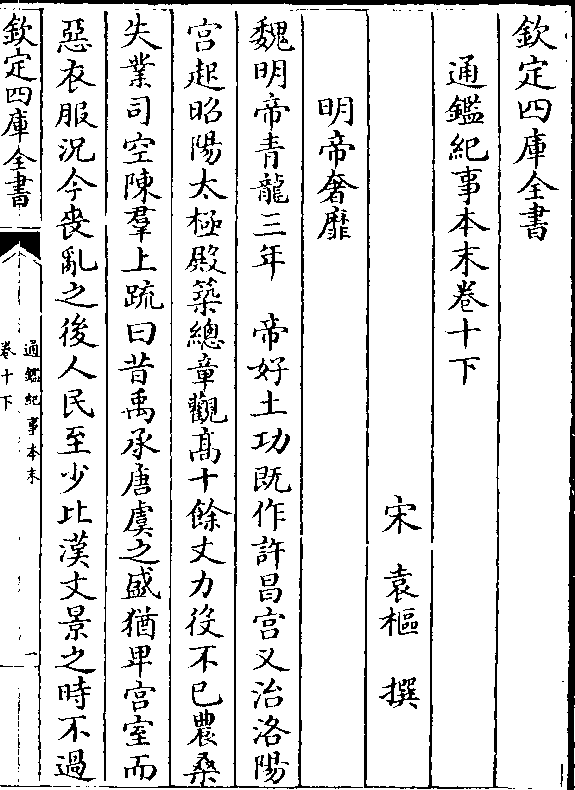 欽定四庫全書
通鑑紀事本末卷十下
宋 袁樞 撰
明帝奢靡
魏明帝青龍三年 帝好土功既作許昌宮又治洛陽
宮起昭陽太極殿築總章觀髙十餘丈力役不已農桑
失業司空陳羣上疏曰昔禹承唐虞之盛猶卑宮室而
惡衣服況今喪亂之後人民至少比漢文景之時不過
欽定四庫全書
通鑑紀事本末
卷十下
一